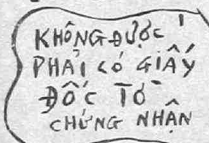 KHÔNG ĐƯỢC!
PHẢI CÓ GIẤY
ĐỐC TỜ
CHỨNG NHẬN